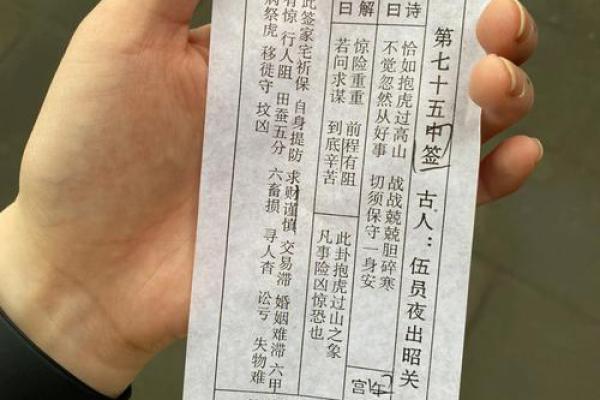 第七十五中签 古人：伍员夜出昭关
诗曰
恰如抱虎过高山 战战兢兢胆碎寒
不觉忽然从好事 切须保守一身安
解曰
惊险重重 前程有阻
若问求谋 到底辛苦
此卦抱虎过山之象
凡事险凶惊恐也
此签家宅祈保 自身提防 求财谨慎 交易滞 婚姻难滞 六甲
有惊 行人阻 田蚕五分 六畜损 寻人杳 讼亏 失物难
病祭虎 移徙守 坟凶
宫